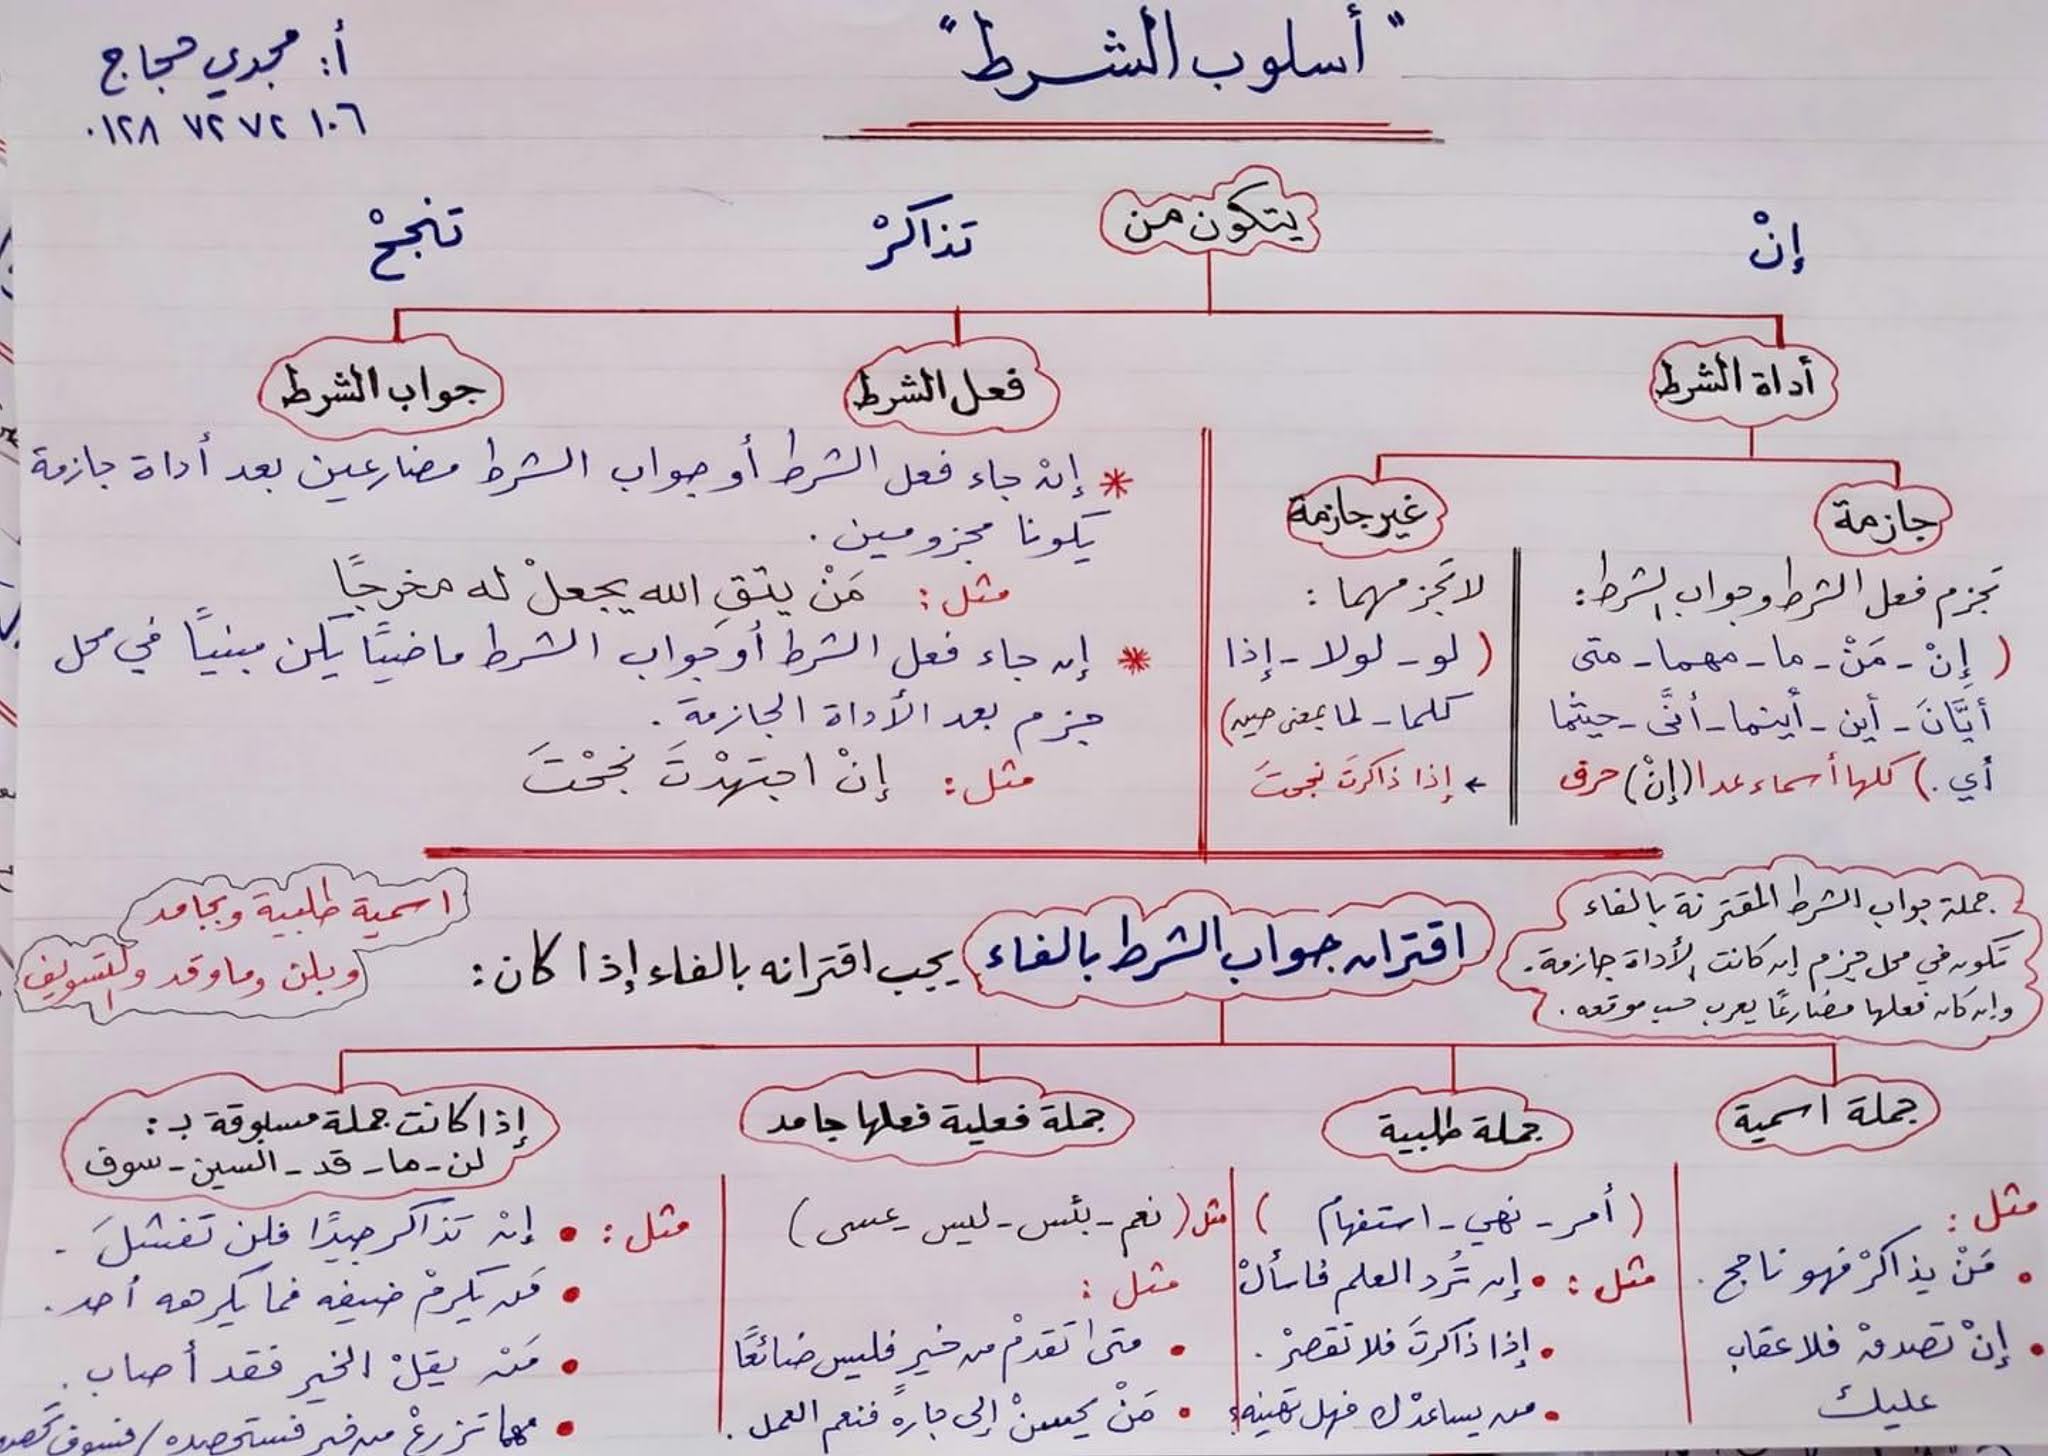 " أسلوب الشرط "
أ: مجدي حجاج
٠١٢٨ ٧٢ ٧٢ ١٠٦
يتكون من
إنْ
تذاكرْ
تنجحْ
أداة الشرط
فعل الشرط
جواب الشرط
جازمة
تجزم فعل الشرط وجواب الشرط:
( إِنْ - مَنْ - ما - مهما - متى
أيَّانَ - أين - أينما - أنَّى - حيثما
أي . ) كلها أسماء عدا (إنْ) حرف
غير جازمة
لا تجزمهما :
( لو - لولا - إذا
كلما - لما بمعنى حين)
← إذا ذاكرتَ نجحتَ
* إنْ جاء فعل الشرط أو جواب الشرط مضارعين بعد أداة جازمة
يكونا مجزومين .
مثل : مَنْ يتقِ الله يجعلْ له مخرجًا
* إن جاء فعل الشرط أو جواب الشرط ماضيًا يكن مبنياً في محل
جزم بعد الأداة الجازمة .
مثل : إنْ اجتهدْتَ نجحْتَ
جملة جواب الشرط المقترنة بالفاء
تكون في محل جزم إن كانت الأداة جازمة.
وإن كان فعلها مضارعًا يعرب حسب موقعه .
اقتران جواب الشرط بالفاء
يجب اقترانه بالفاء إذا كان :
اسمية طلبية وبجامد
وبلن وما وقد والتسويف
جملة اسمية
مثل :
• مَنْ يذاكرْ فهو ناجح .
• إنْ تصدقْ فلا عقاب
عليك
جملة طلبية
( أمر - نهي - استفهام )
مثل : • إن تُرد العلم فاسألْ
• إذا ذاكرتَ فلا تقصرْ .
• من يساعدْك فهل تهينه؟
جملة فعلية فعلها جامد
مثل ( نعم - بئس - ليس - عسى )
مثل :
• متى تقدمْ من خيرٍ فليس ضائعًا
• مَنْ يحسنْ إلى جاره فنعم العمل .
إذا كانت جملة مسبوقة بـ :
لن - ما - قد - السين - سوف
مثل : • إنْ تذاكر جيدًا فلن تفشلَ .
• مَن يكرمْ ضيفه فما يكرهه أحد .
• مَنْ يقلْ الخير فقد أصاب .
• مهما تزرعْ من خير فستحصده / فسوف